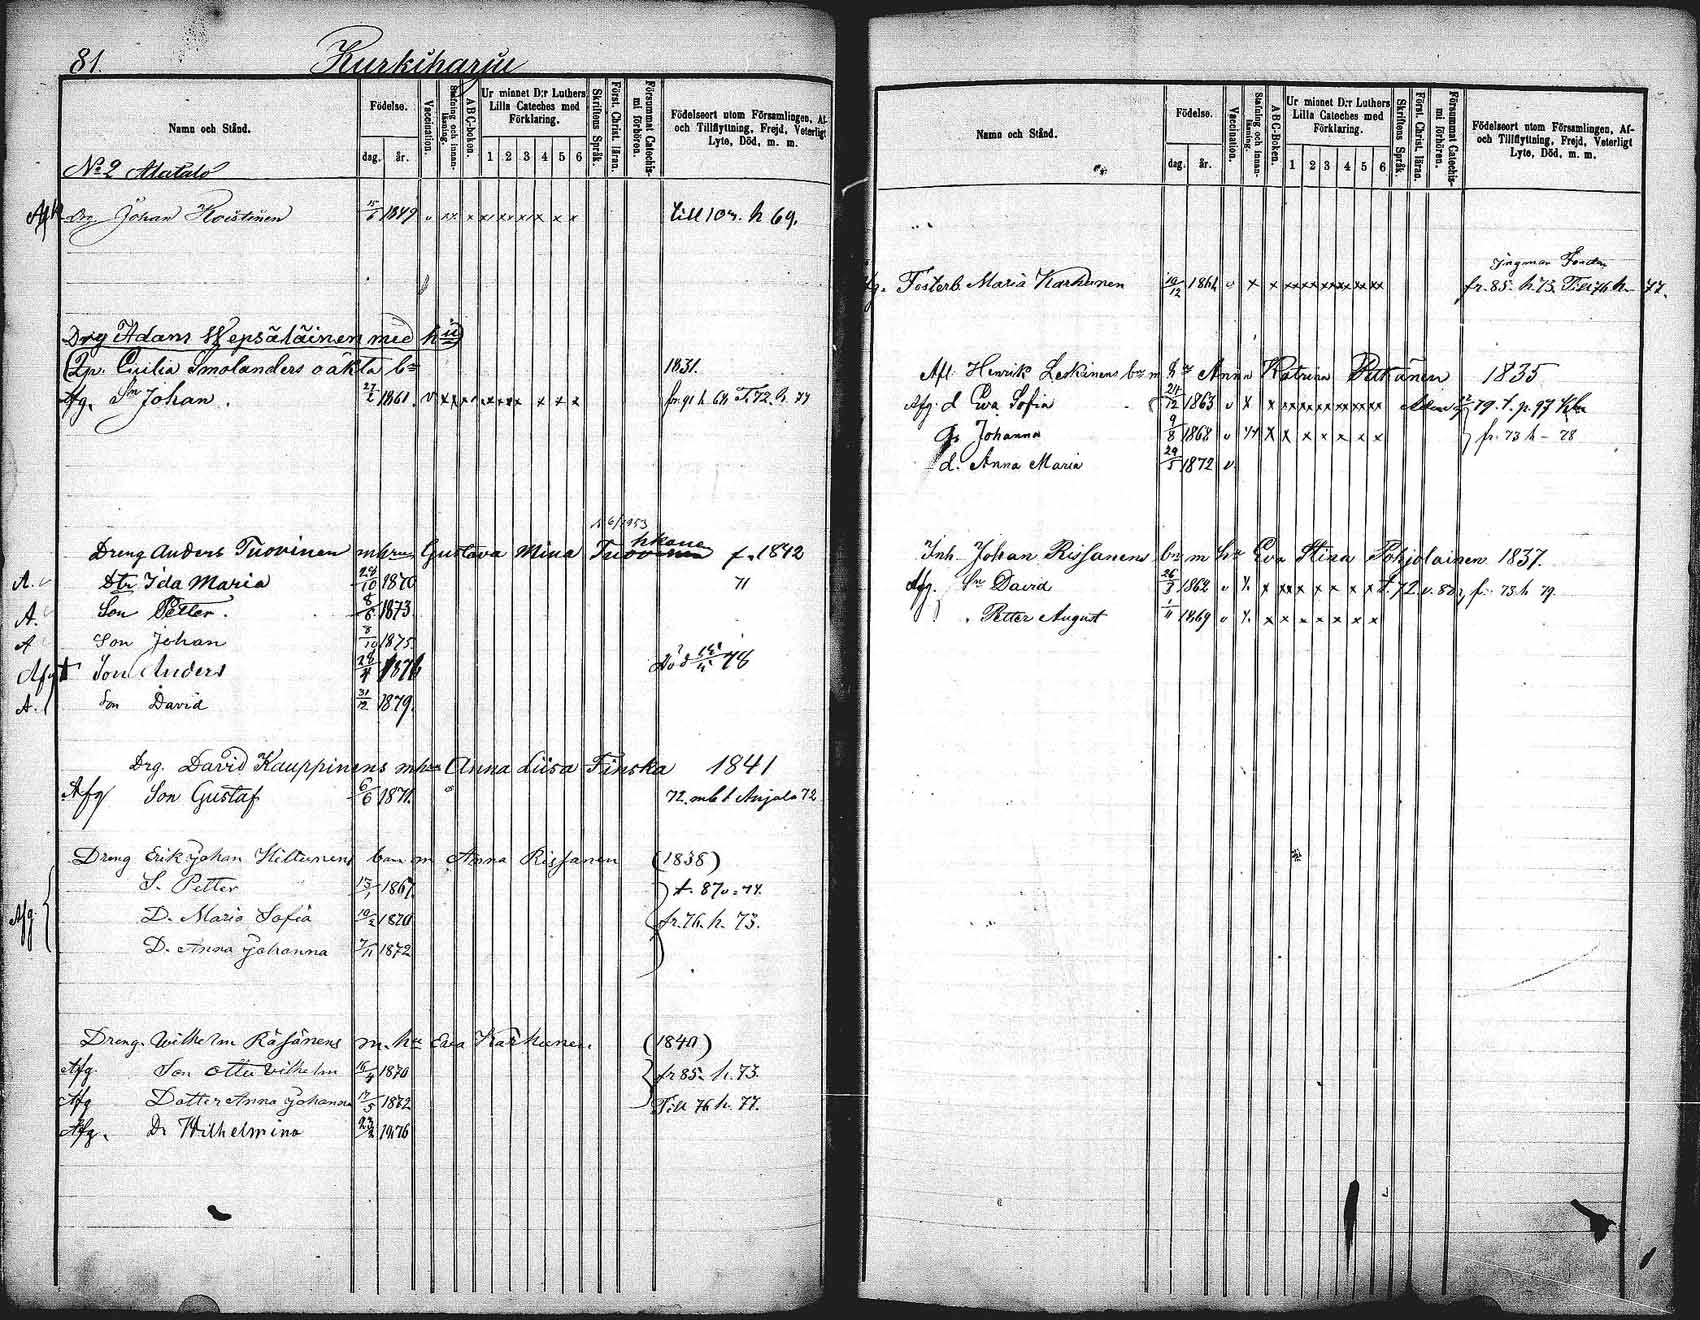 81. Kurkiharju
Namn och Stånd.
Födelse.
dag. år.
Vaccination.
Stafning och innanläsning.
ABC-boken.
Ur minnet D:r Luthers Lilla Cateches med Förklaring.
1 2 3 4 5 6
Skriftens Språk.
Först. Christ. läran.
Försummat Catechismi förhören.
Födelseort utom Församlingen, Af- och Tillflyttning, Frejd, Veterligt Lyte, Död, m. m.
No 2 Alatalo
Johan Koistinen 15/6 1849 v xx x x x x x x x till 103. h 69.
Drg Adam Wepsäläinen med hu
Cicilia Smolanders oäkta bn 1831.
Afg. Sn Johan. 27/2 1861. v T. 72. h. 77
Dreng Anders Tuovinen m hrun Gustava Mina f. 1842
A. Dtr Ida Maria 28/10 1870 71
A. Son Petter. 8/6 1873.
A Son Johan 8/10 1875
Afg † Son Anders 28/4 1876 Död 78
A. Son David 31/12 1879.
Drg. David Kauppinens m hu Anna Liisa Finska 1841
Afg Son Gustaf 6/6 1871. 72. mb t Anjala 72
Dreng Erik Johan Kiltunens barn m Anna Rissanen (1838)
S. Petter 1867. t. 87
Afg. D. Maria Sofia 10/2 1870 fr. 76. h. 73.
D. Anna Johanna 7/11 1872
Dreng. Wilhelm Räsänens m. hu Eva Karhunen (1840)
Afg. Son Otto Vilhelm 16/4 1870 fr 85. h. 73.
Afg Dotter Anna Johanna 17/5 1872 Till 76 h. 77.
Afg. Dr Wilhelmina 1876
Namn och Stånd.
Födelse.
dag. år.
Vaccination.
Stafning och innanläsning.
ABC-Boken.
Ur minnet D:r Luthers Lilla Cateches med Förklaring.
1 2 3 4 5 6
Skriftens Språk.
Först. Christ. läran.
Försummat Catechismi förhören.
Födelseort utom Församlingen, Af- och Tillflyttning, Frejd, Veterligt Lyte, Död, m. m.
Fosterb. Maria Karhunen 19/12 1864 v x x fr. 85. h. 73. Till 76 h. 77.
Afl. Henrik Leskinens bn m hu Anna Katrina Pitkänen 1835
Afg. d Eva Sofia 24/12 1863 v x x
Johanna 9/8 1868 v x x x x x x x fr. 73 h - 78
d. Anna Maria 29/5 1872 v.
Inh Johan Rissanens bn m hu Eva Stina Pohjolainen 1837.
Afg. Sn David 26/3 1862 v x. x x x x x x x fr 73 h 79.
Petter August 1/4 1869 v x. x x x x x x